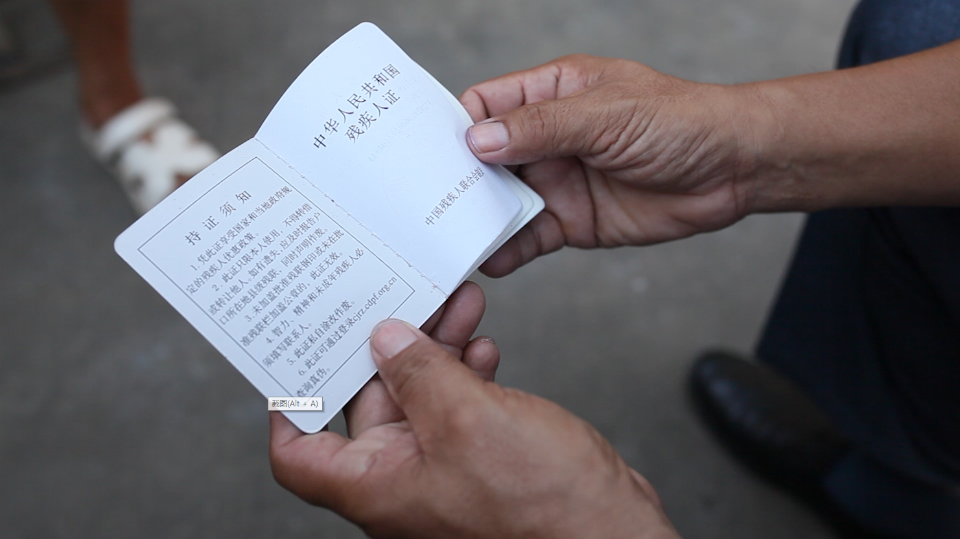 持证须知
1. 凭此证享受国家和当地政府规
定的残疾人优惠政策。
2. 此证只限本人使用，不得转借
或转让他人。如有遗失，应及时报告户
口所在地县级残联，同时声明作废。
3. 未加盖批准残联钢印或未在批
准残联栏加盖公章的，此证无效。
4. 智力、精神和未成年残疾人必
须填写联系人。
5. 此证私自涂改作废。
6. 此证可通过登录cjrz.cdpf.org.cn
查询真伪。
中华人民共和国
残疾人证
中国残疾人联合会
截图(Alt + A)